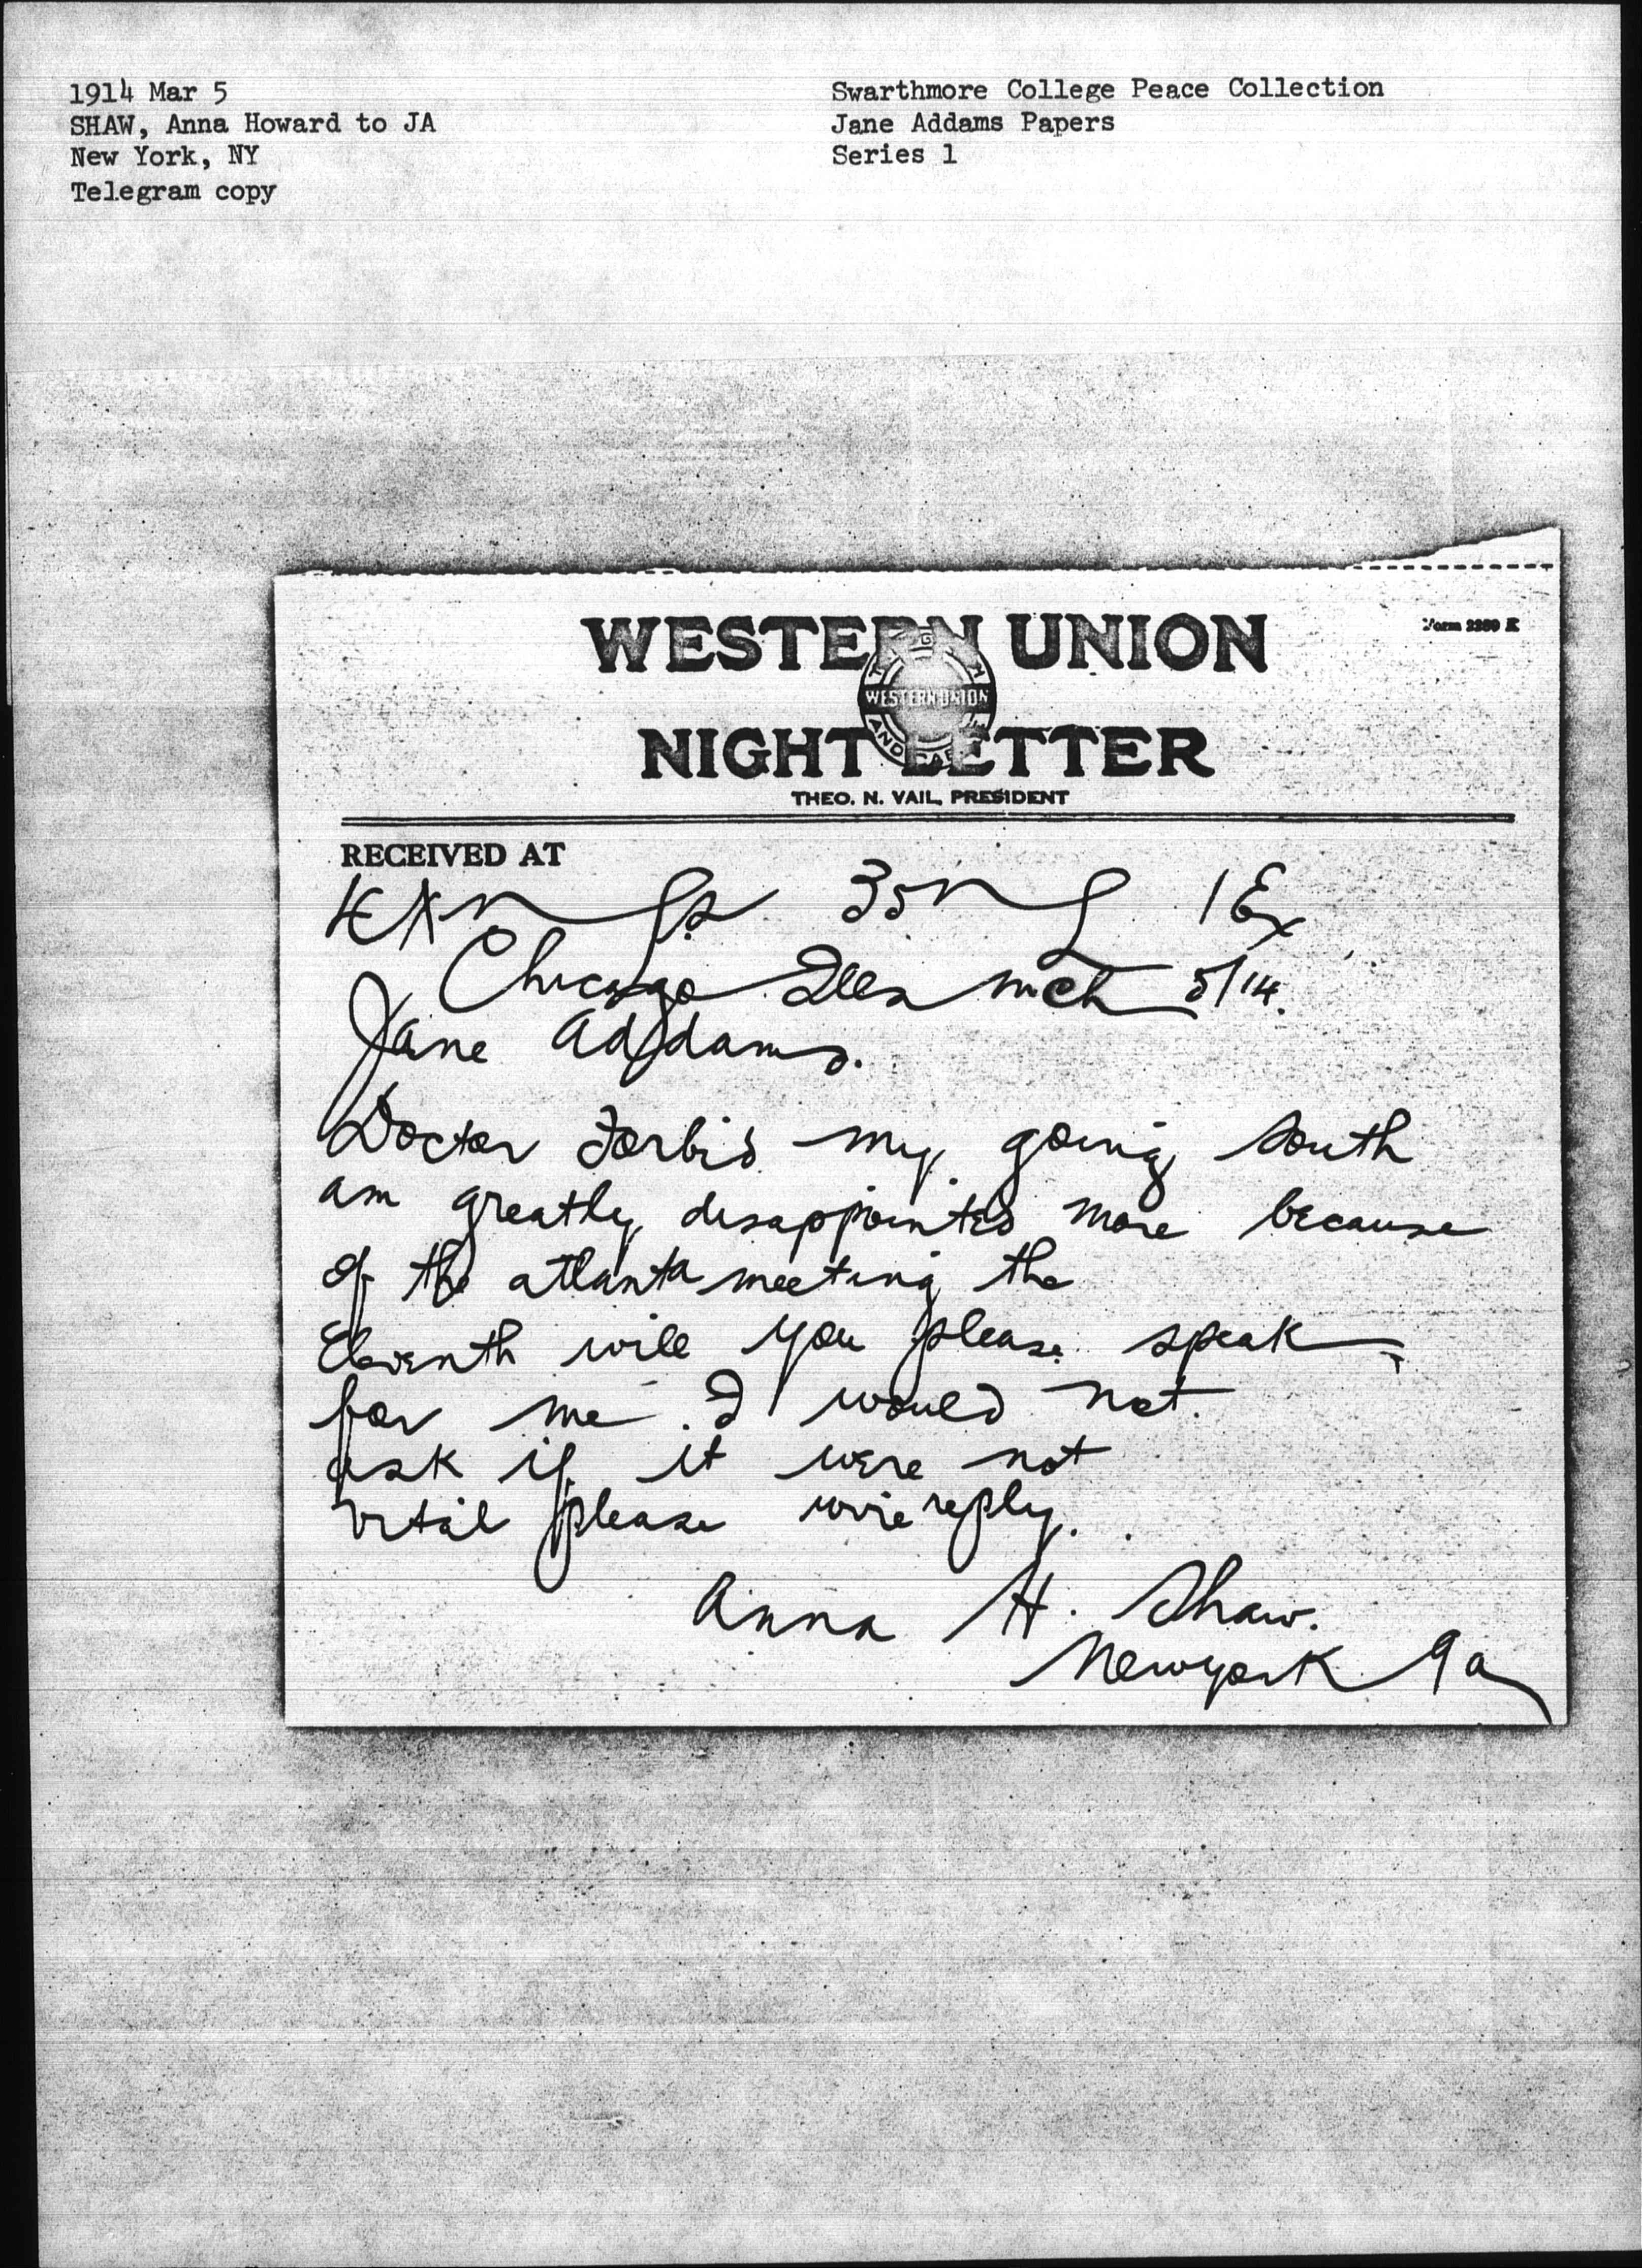 1914 Mar 5
SHAW, Anna Howard to JA
New York, NY
Telegram copy
Swarthmore College Peace Collection
Jane Addams Papers
Series 1
WESTERN UNION
WESTERN UNION
NIGHT LETTER
THEO. N. VAIL, PRESIDENT
Form 2289 E
RECEIVED AT
35
Chicago Ills mch 5/14.
Jane Addams.
Doctor Forbids my going south
am greatly disappointed more because
of the atlanta meeting the
Eleventh will you please speak
for me. I would not.
ask if it were not
vital please wire reply.
Anna H. Shaw.
Newyork 9a